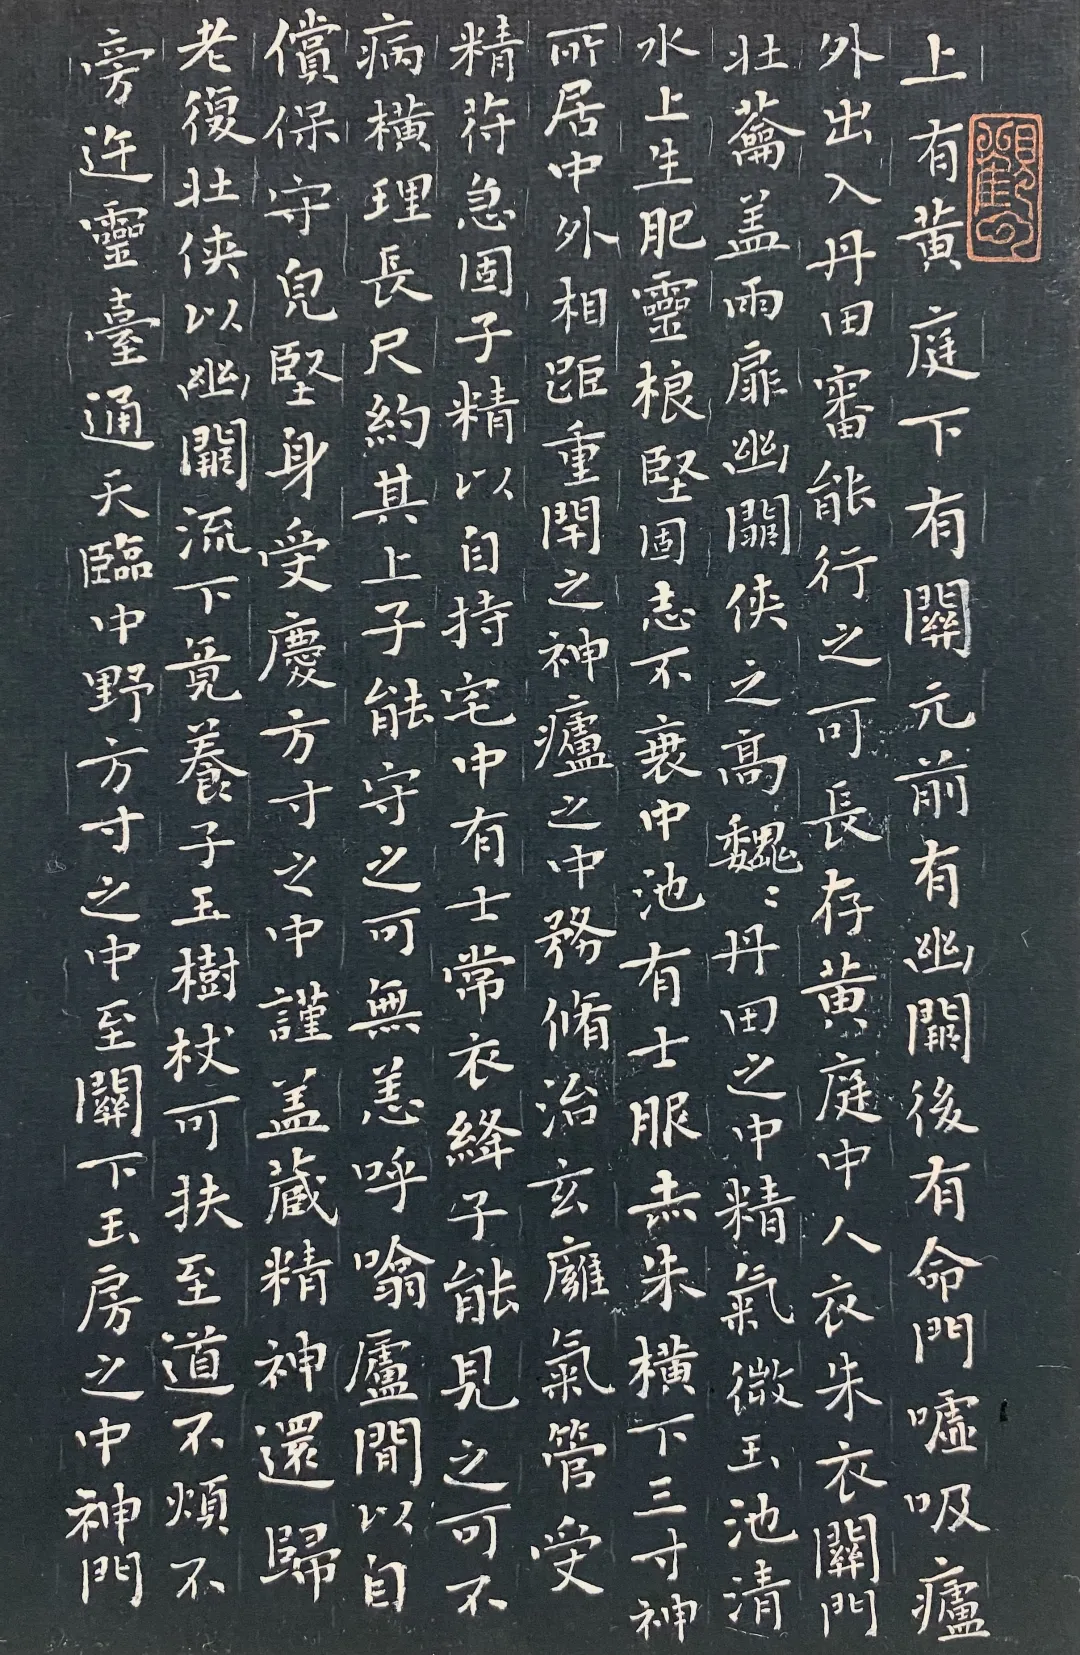 上有黃庭下有關元前有幽闕後有命門噓吸廬
外出入丹田審能行之可長存黃庭中人衣朱衣關門
壯蘥盖兩扉幽闕侠之高魏〻丹田之中精氣微玉池清
水上生肥靈根堅固志不衰中池有士服赤朱横下三寸神
所居中外相距重閇之神廬之中務脩治玄廱氣管受
精苻急固子精以自持宅中有士常衣絳子能見之可不
病横理長尺約其上子能守之可無恙呼噏廬間以自
償保守皃堅身受慶方寸之中謹盖藏精神還歸
老復壯侠以幽闕流下竟養子玉樹杖可扶至道不煩不
旁迕靈臺通天臨中野方寸之中至關下玉房之中神門